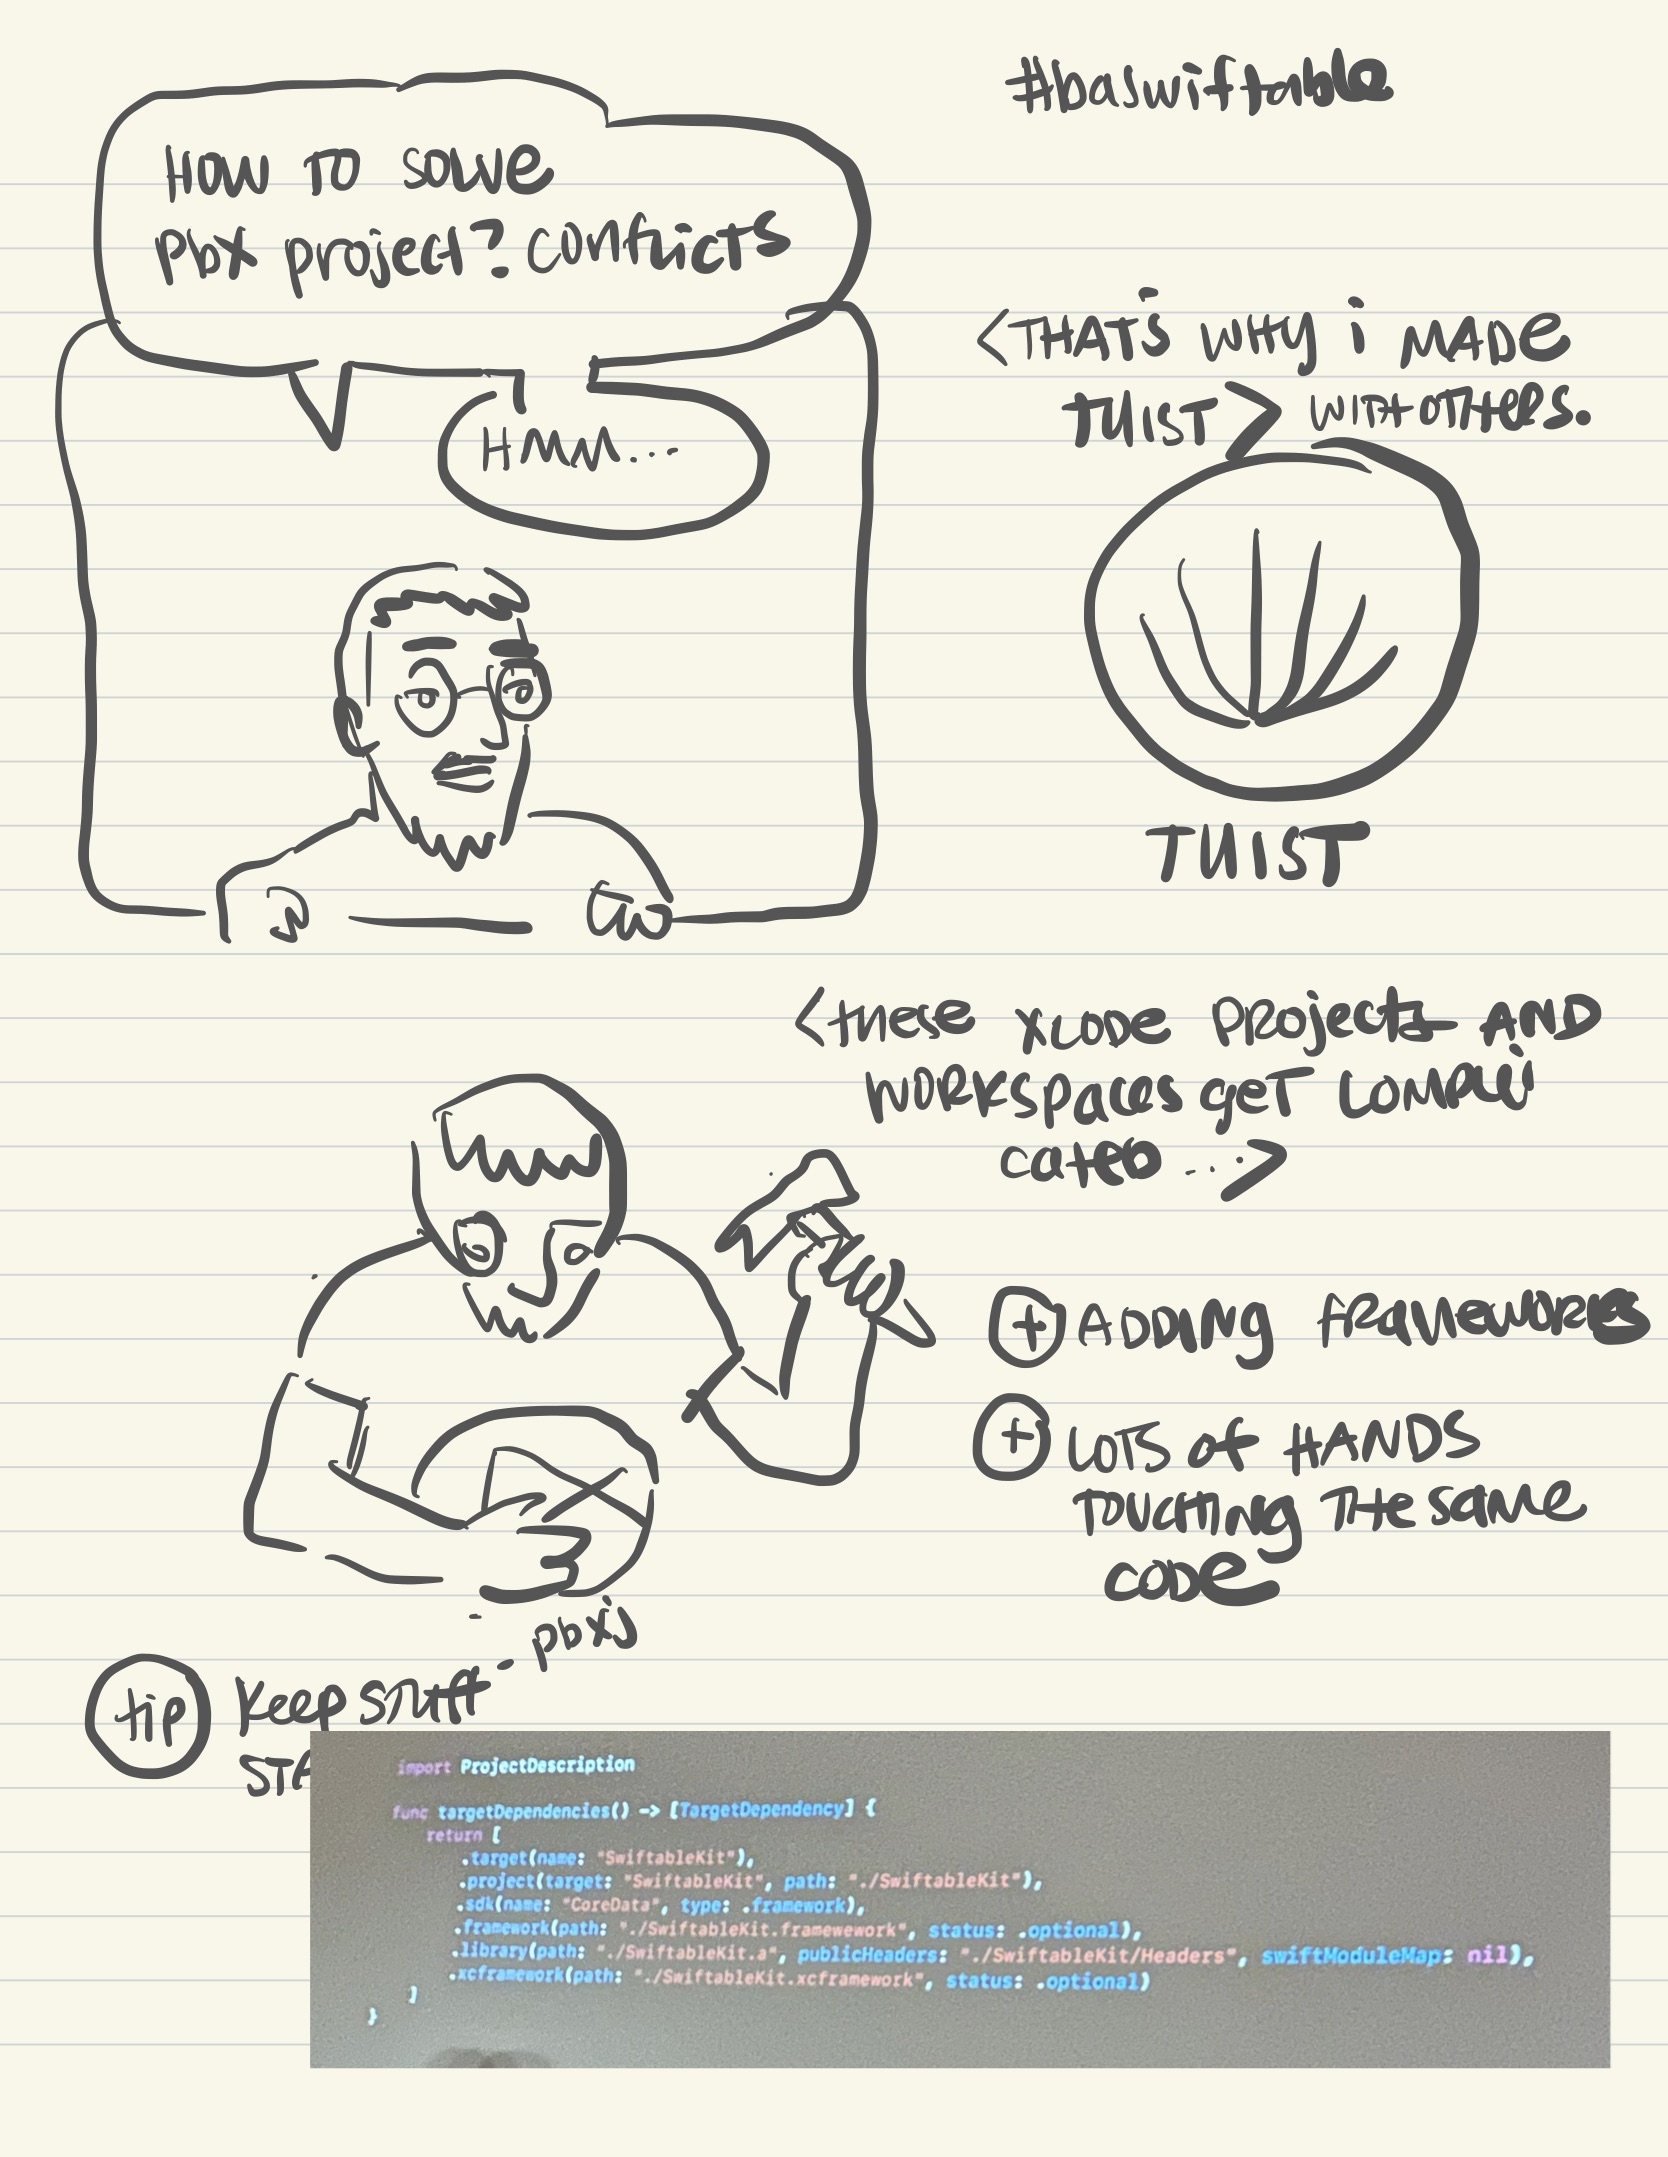 #baswiftable
HOW TO SOLVE
pbx project? conflicts
HMM...
<THAT'S WHY i MADE
TUIST> WITH OTHERS.
TUIST
<these XCODE PROJECTS AND
WORKSPACES GET COMPLI
CATED ...>
+ ADDING FRAMEWORKS
+ LOTS of HANDS
TOUCHING THE SAME
CODE
pbx's
tip Keep STUFF
STA
import ProjectDescription
func targetDependencies() -> [TargetDependency] {
return [
.target(name: "SwiftableKit"),
.project(target: "SwiftableKit", path: "./SwiftableKit"),
.sdk(name: "CoreData", type: .framework),
.framework(path: "./SwiftableKit.framewework", status: .optional),
.library(path: "./SwiftableKit.a", publicHeaders: "./SwiftableKit/Headers", swiftModuleMap: nil),
.xcframework(path: "./SwiftableKit.xcframework", status: .optional)
]
}